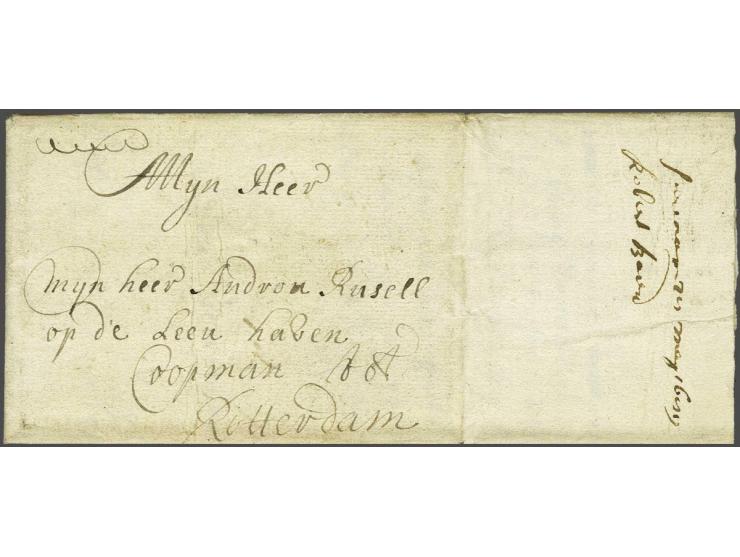 Myn Heer
myn heer Andron Rusell
op de Leeu haven
Coopman tot
Rotterdam
Robert